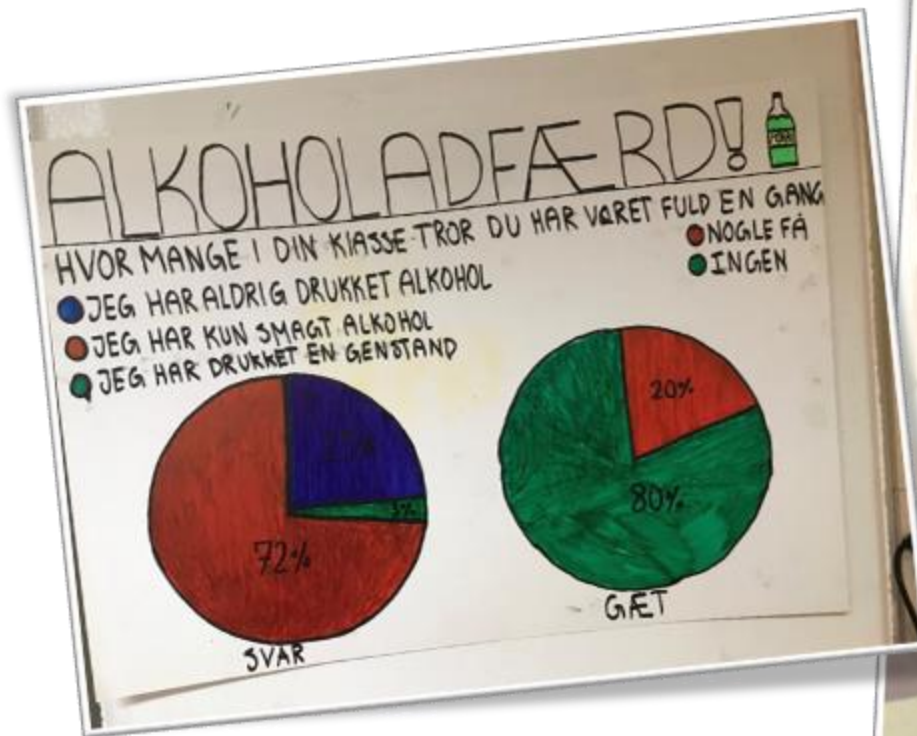 ALKOHOLADFÆRD!
HVOR MANGE I DIN KLASSE TROR DU HAR VÆRET FULD EN GANG
JEG HAR ALDRIG DRUKKET ALKOHOL
JEG HAR KUN SMAGT ALKOHOL
JEG HAR DRUKKET EN GENSTAND
NOGLE FÅ
INGEN
72%
SVAR
20%
80%
GÆT